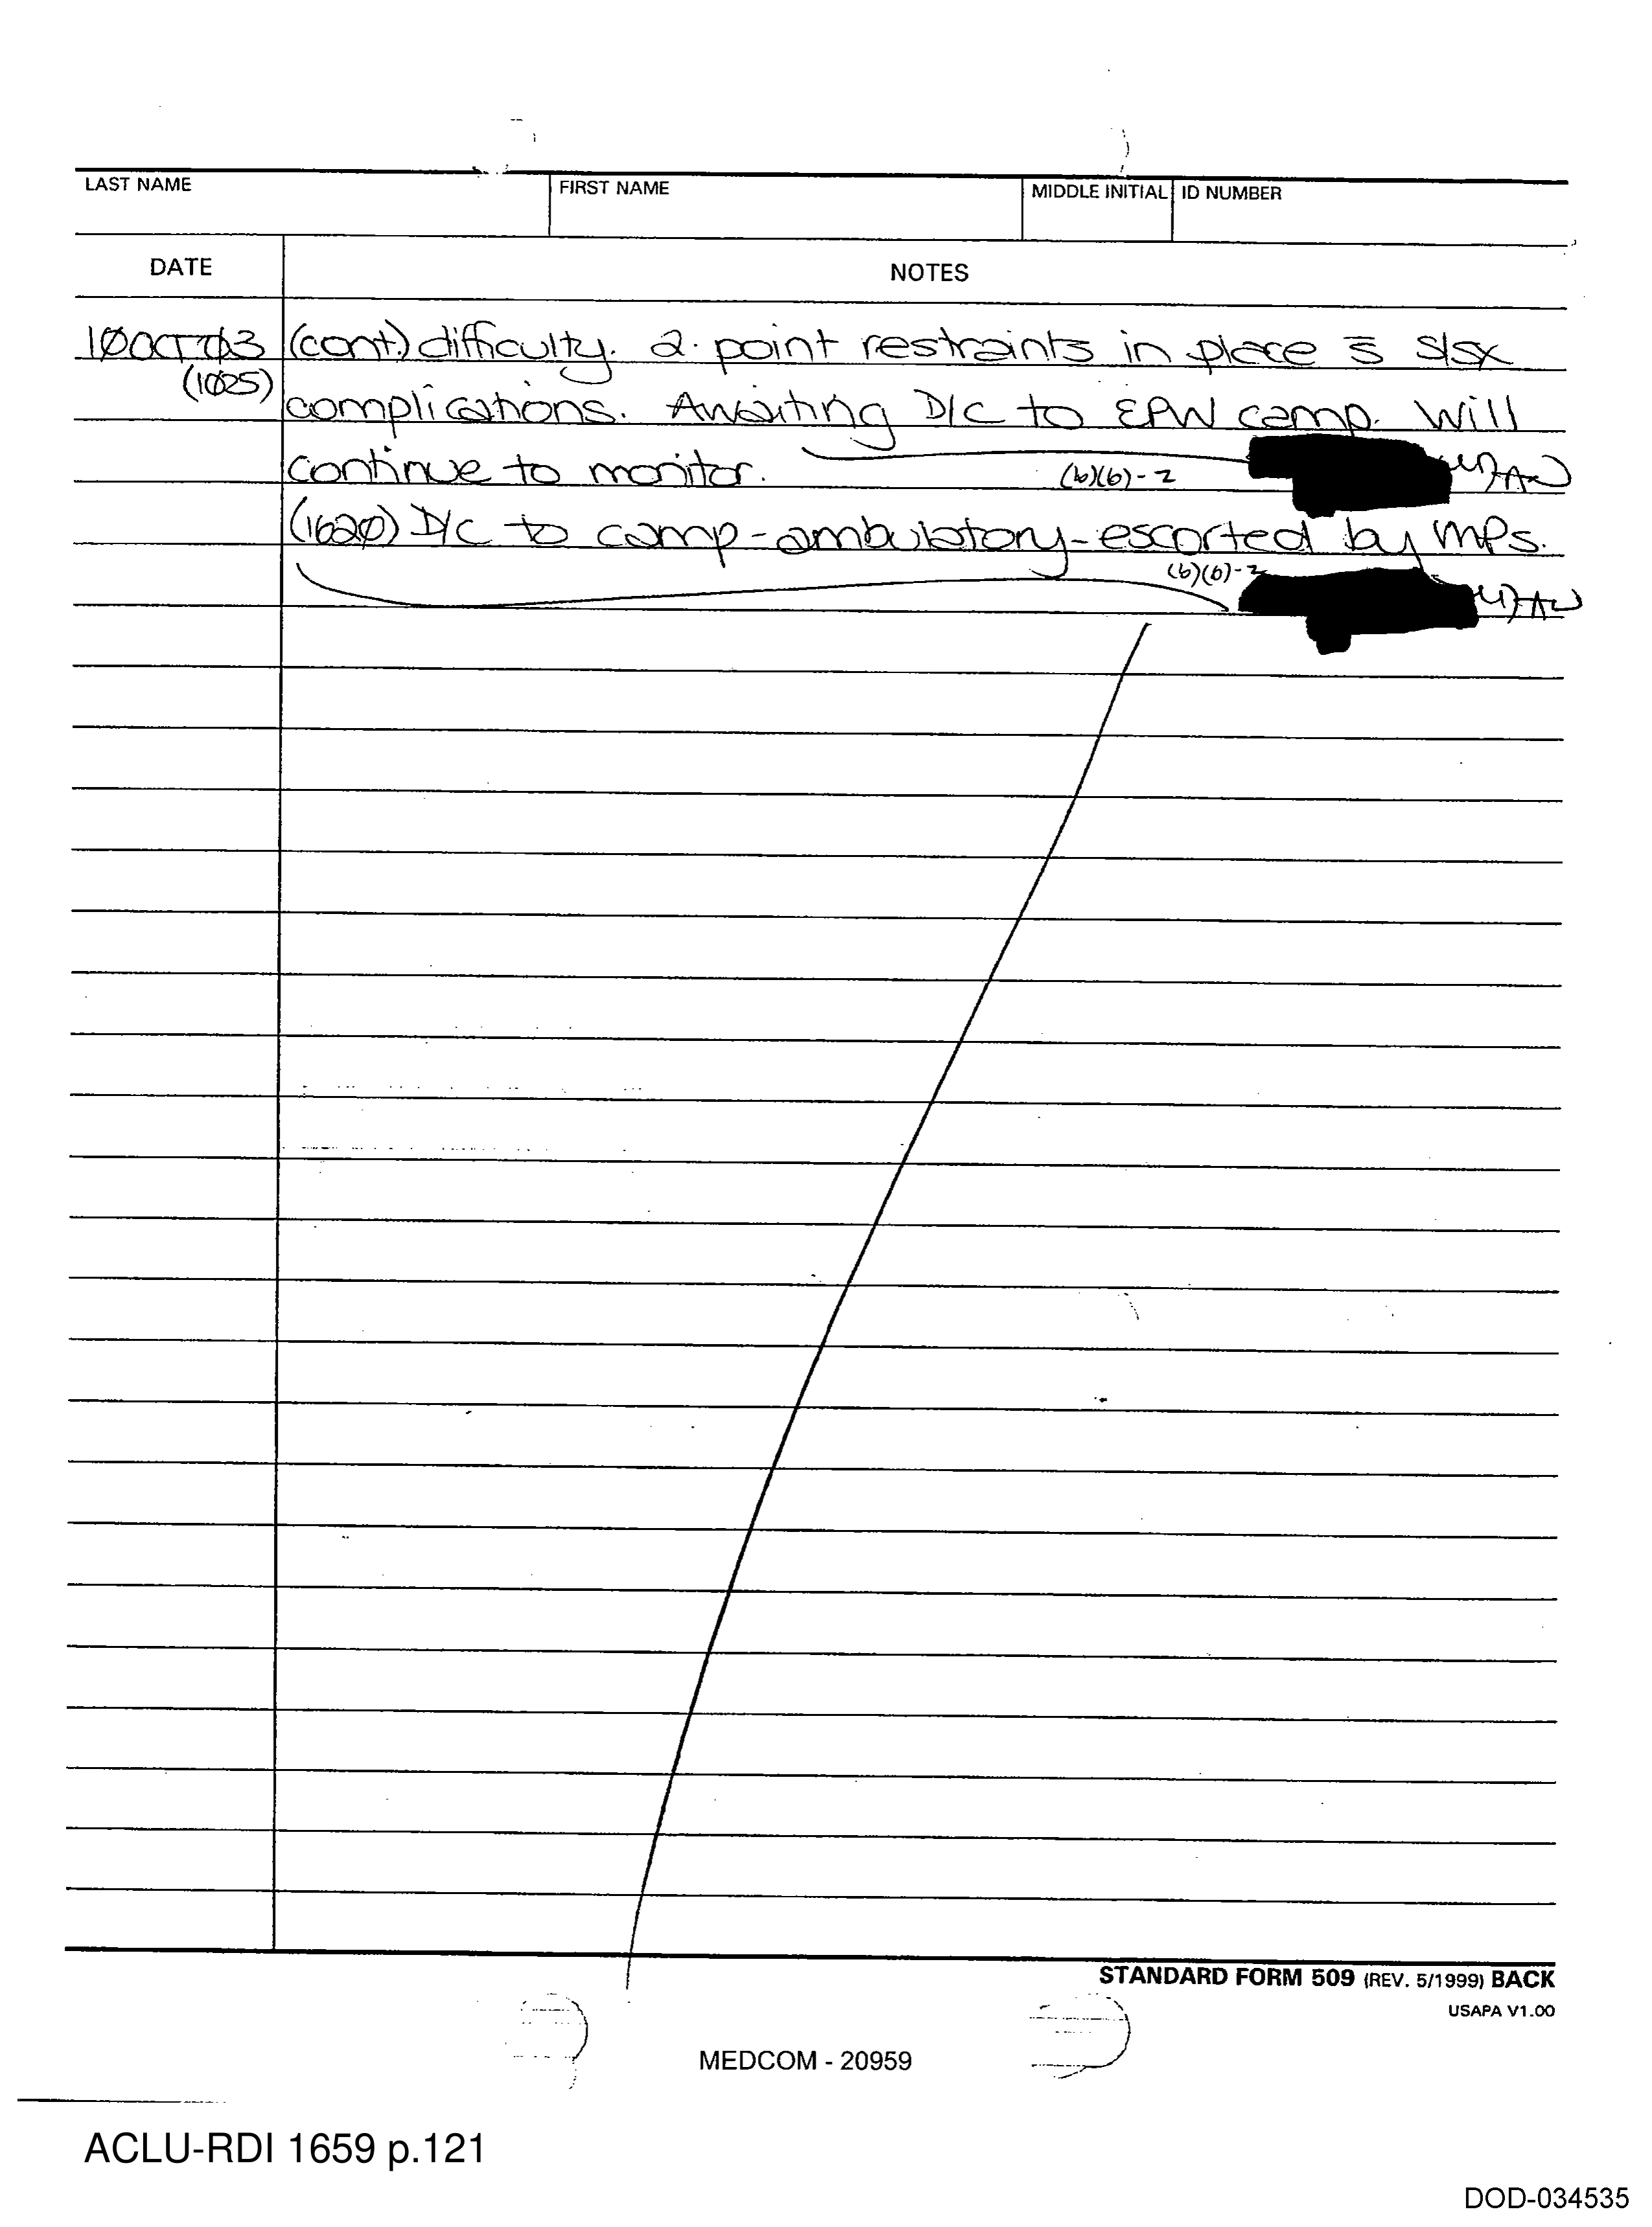 LAST NAME FIRST NAME MIDDLE INITIAL ID NUMBER
DATE NOTES
10OCT03 (cont.) difficulty. 2 point restraints in place s̄ s/sx
(1025) complications. Awaiting D/C to EPW camp. Will
continue to monitor. (b)(6)-2
(1620) D/C to camp-ambulatory-escorted by MPs.
(b)(6)-2
STANDARD FORM 509 (REV. 5/1999) BACK
USAPA V1.00
MEDCOM - 20959
ACLU-RDI 1659 p.121
DOD-034535